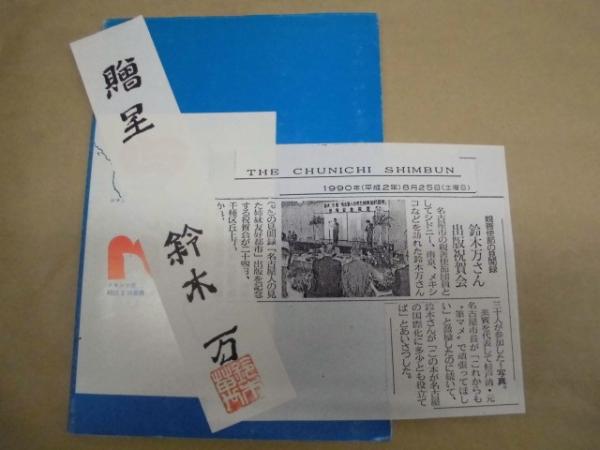 贈呈
鈴木 万
THE CHUNICHI SHIMBUN
1990年(平成2年)8月25日(土曜日)
親善使節の見聞録
鈴木万さん
出版祝賀会
名古屋市の親善使節団員と
してシドニー、南京、メキシ
コなどを訪れた鈴木万さん
の見聞録「名古屋人の見
た姉妹友好都市」出版を記念
する祝賀会が二十四日、
千種区
三十人が参加した＝写真。
来賓を代表して杉戸清・元
名古屋市長が「これからも
で頑張ってほし
い」と激励したのに続いて、
鈴木さんが「この本が名古屋
の国際化に多少とも役立て
ば」とあいさつした。